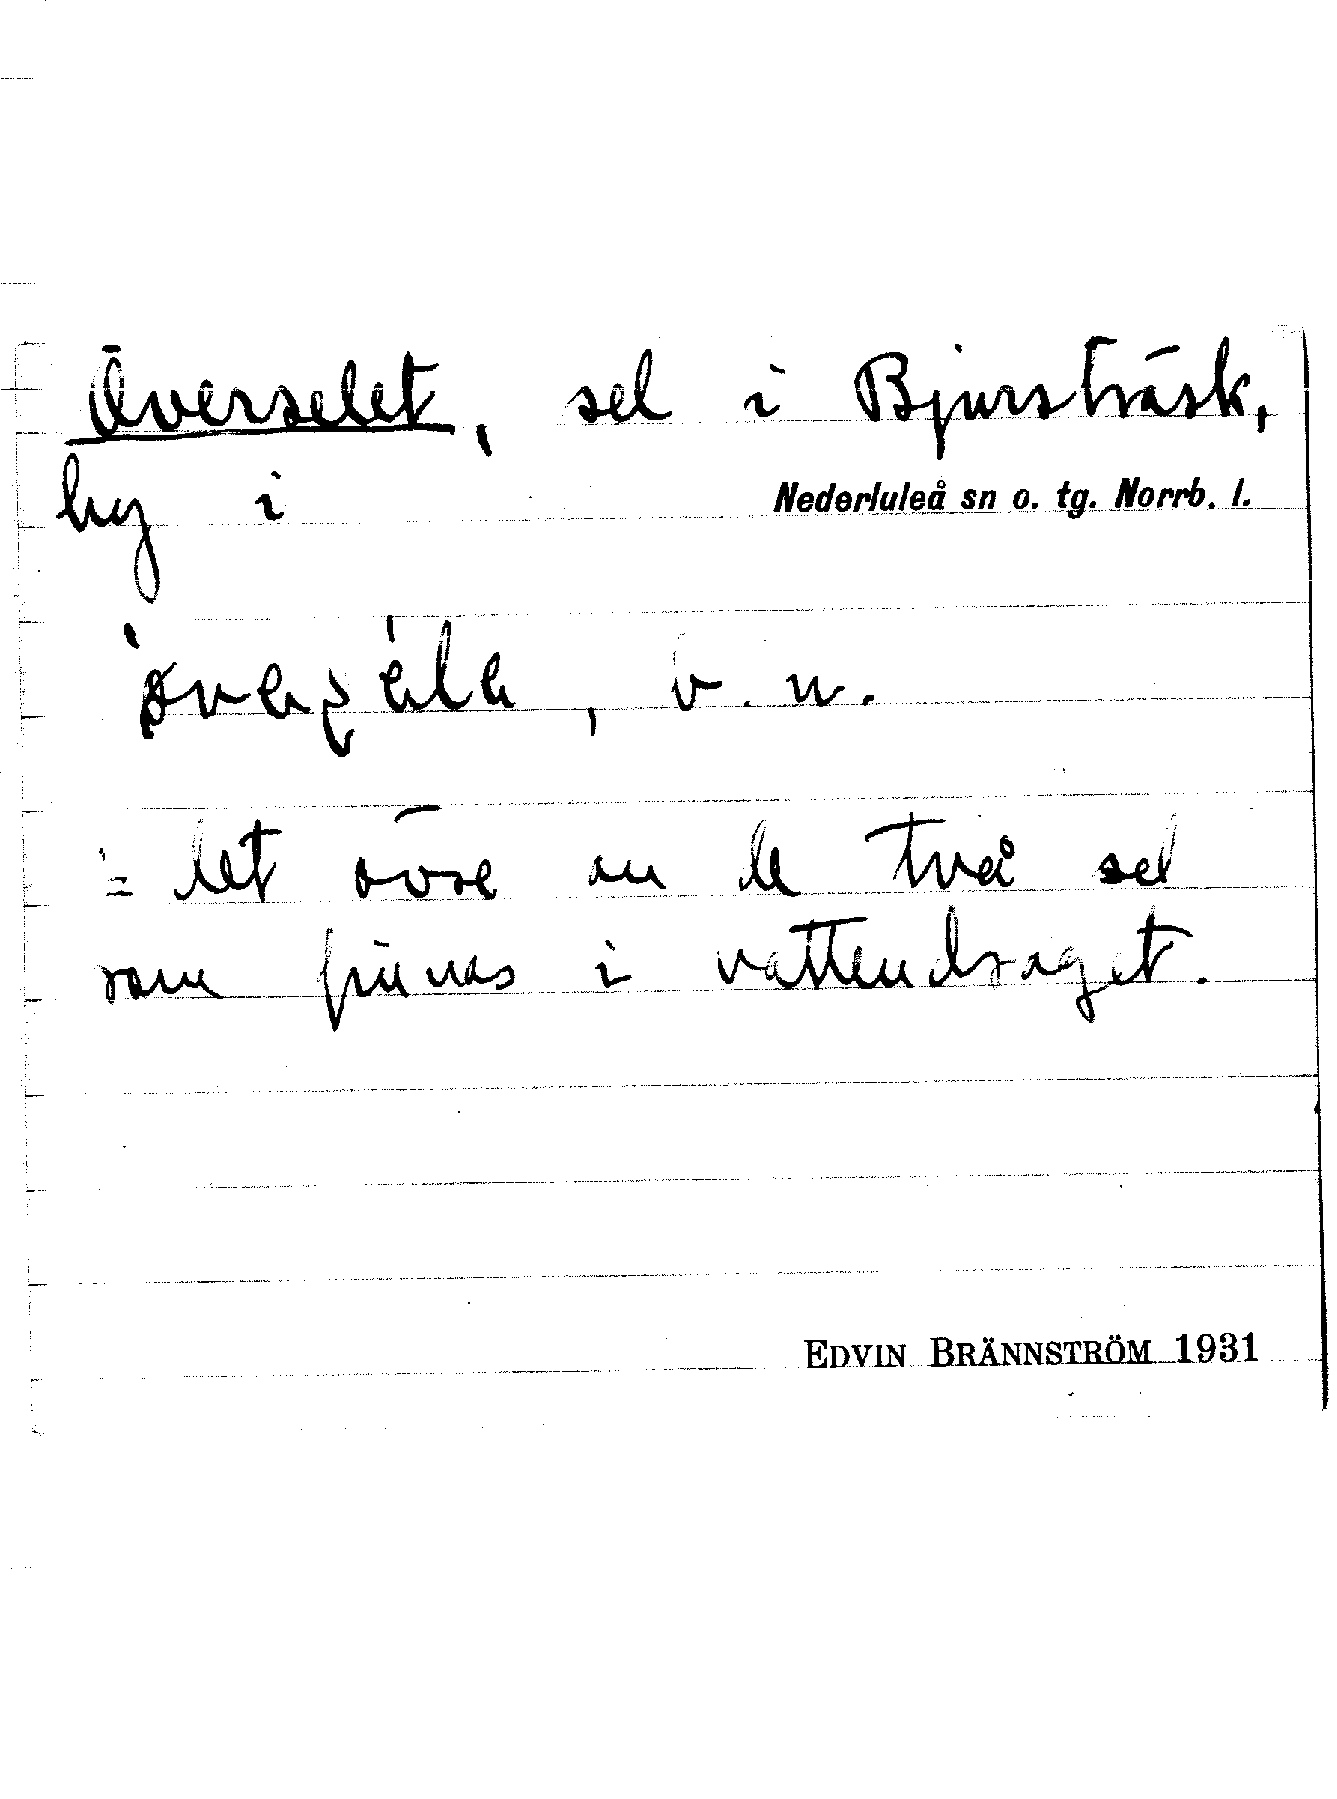 Överselet, sel i Bjursträsk,
by i Nederluleå sn o. tg. Norrb. l.
b. n.
= det övre av de två sel
som finnas i vattendraget.
EDVIN BRÄNNSTRÖM 1931